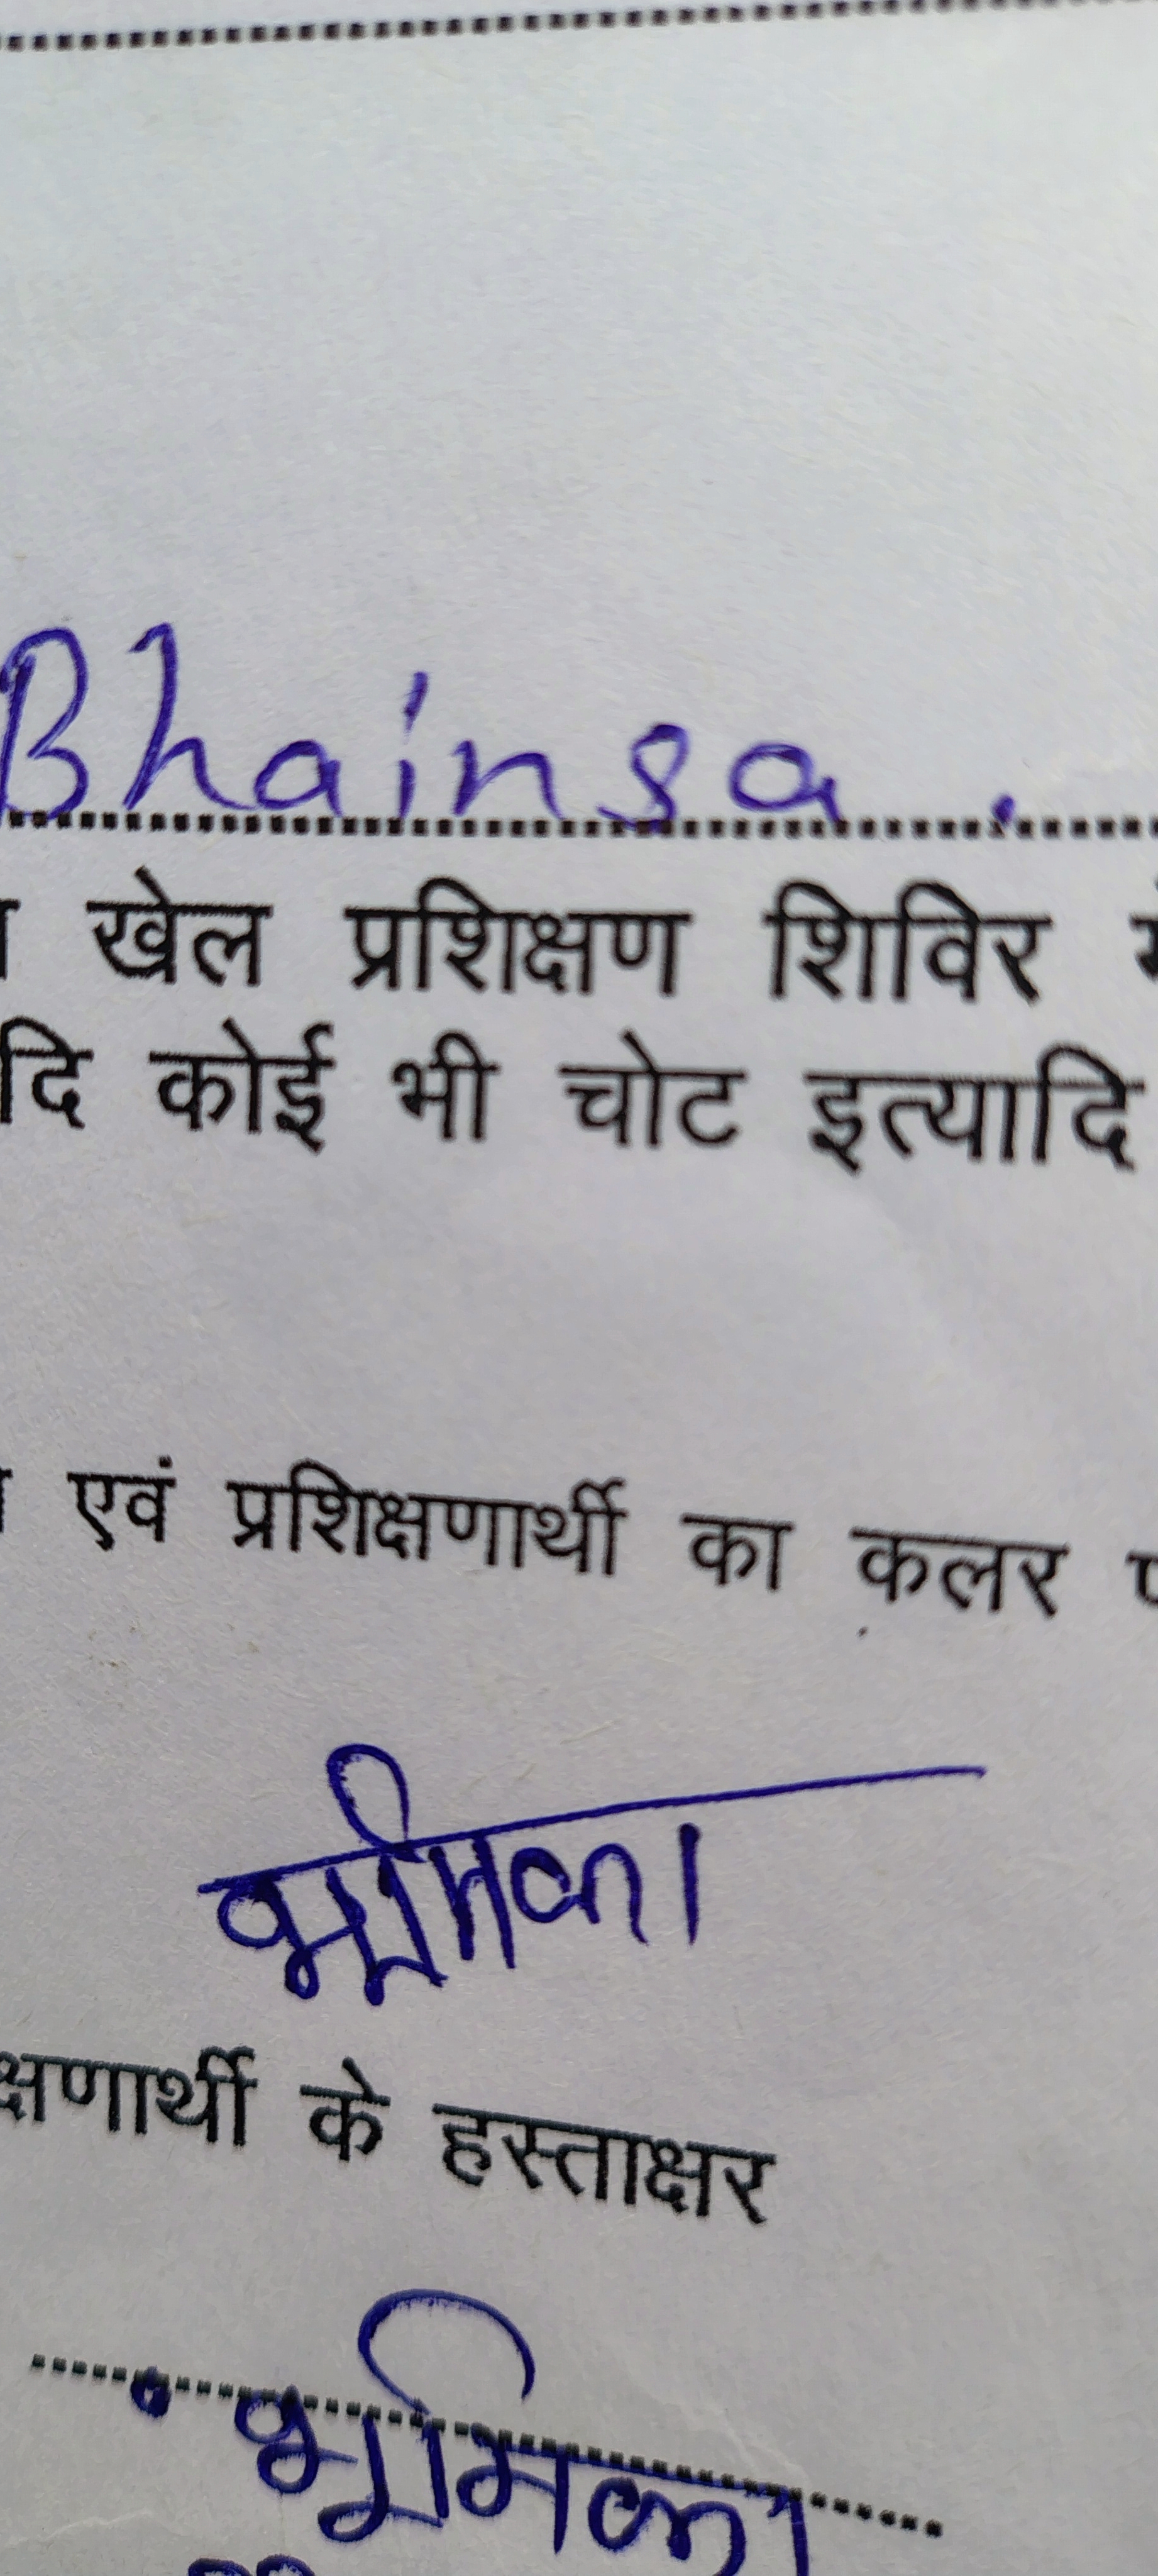 Bhainsa.
खेल प्रशिक्षण शिविर
कोई भी चोट इत्यादि
एवं प्रशिक्षणार्थी का कलर
भूमिका
क्षणार्थी के हस्ताक्षर
भूमिका